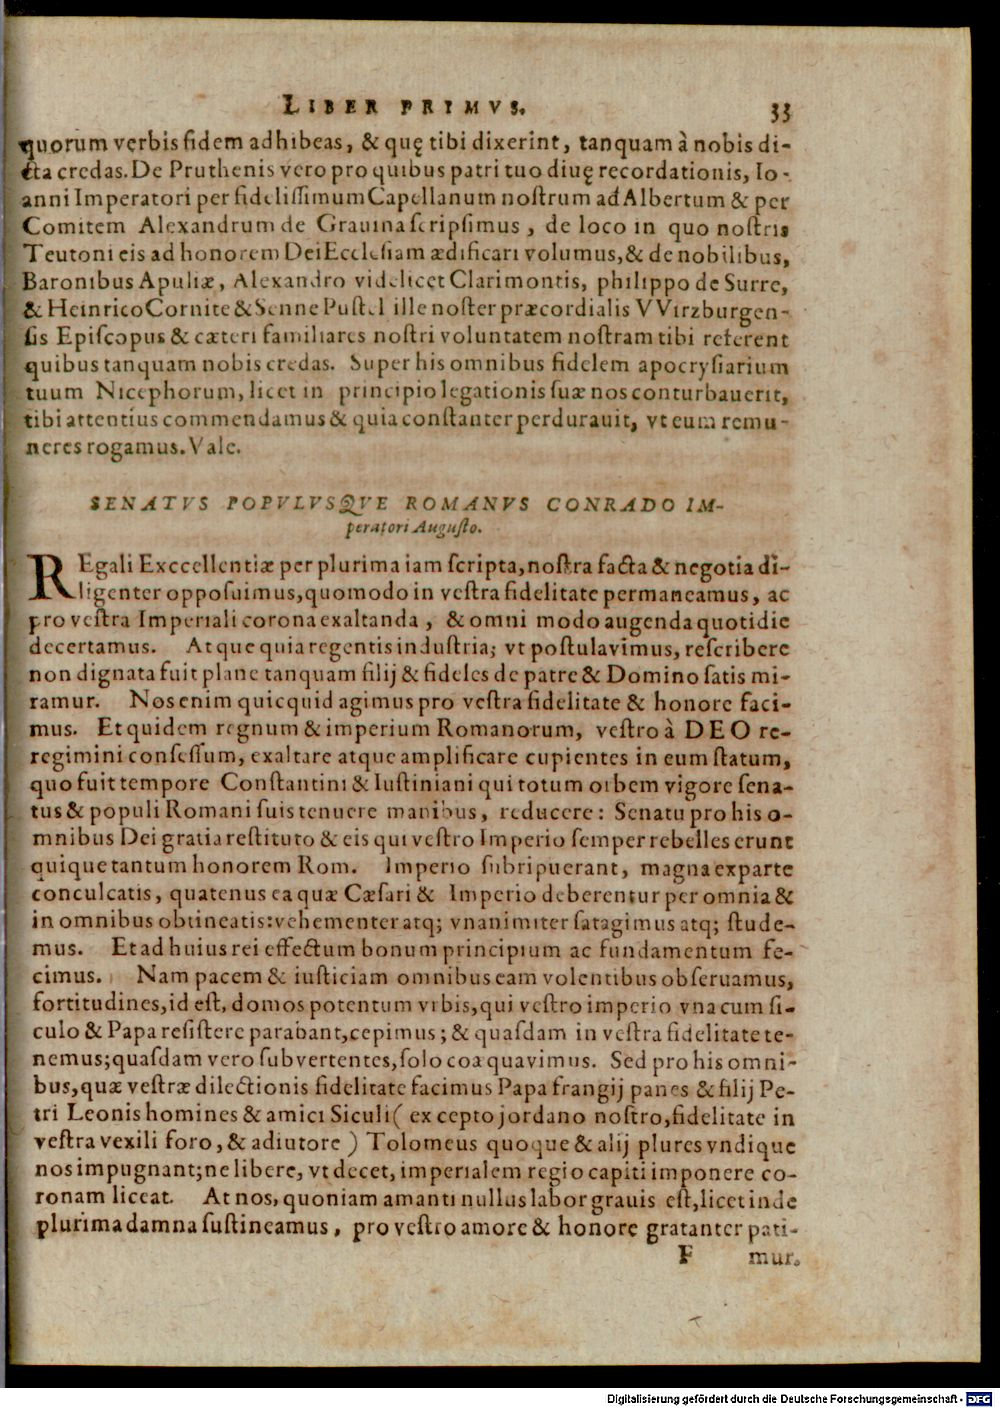 LIBER PRIMVS. 33
quorum verbis fidem adhibeas, & quę tibi dixerint, tanquam à nobis di-
cta credas. De Pruthenis vero pro quibus patri tuo diuę recordationis, Io-
anni Imperatori per fidelissimum Capellanum nostrum ad Albertum & per
Comitem Alexandrum de Grauina scripsimus, de loco in quo nostris
Teutonicis ad honorem Dei Ecclesiam ædificari volumus, & de nobilibus,
Baronibus Apuliæ, Alexandro videlicet Clarimontis, philippo de Surre,
& Heinrico Cornite & Senne Pustel ille noster præcordialis VVirzburgen-
sis Episcopus & cæteri familiares nostri voluntatem nostram tibi referent
quibus tanquam nobis credas. Super his omnibus fidelem apocrysiarium
tuum Nicephorum, licet in principio legationis suæ nos conturbauerit,
tibi attentius commendamus & quia constanter perdurauit, vt eum remu-
neres rogamus. Vale.
SENATVS POPVLVSQVE ROMANVS CONRADO IM-
peratori Augusto.
REgali Exccellentiæ per plurima iam scripta, nostra facta & negotia di-
ligenter opposuimus, quomodo in vestra fidelitate permaneamus, ac
pro vestra Imperiali corona exaltanda, & omni modo augenda quotidie
decertamus. Atque quia regentis industria; vt postulavimus, rescribere
non dignata fuit plane tanquam filij & fideles de patre & Domino satis mi-
ramur. Nos enim quicquid agimus pro vestra fidelitate & honore faci-
mus. Et quidem regnum & imperium Romanorum, vestro à DEO re-
regimini confessum, exaltare atque amplificare cupientes in eum statum,
quo fuit tempore Constantini & Iustiniani qui totum orbem vigore sena-
tus & populi Romani suis tenuere manibus, reducere: Senatu pro his o-
mnibus Dei gratia restituto & eis qui vestro Imperio semper rebelles erunt
quique tantum honorem Rom. Imperio subripuerant, magna ex parte
conculcatis, quatenus ea quæ Cæsari & Imperio deberentur per omnia &
in omnibus obtineatis: vehementer atq; vnanimiter satagimus atq; stude-
mus. Et ad huius rei effectum bonum principium ac fundamentum fe-
cimus. Nam pacem & iusticiam omnibus eam volentibus obseruamus,
fortitudines, id est, domos potentum vrbis, qui vestro imperio vna cum si-
culo & Papa resistere parabant, cepimus; & quasdam in vestra fidelitate te-
nemus; quasdam vero subvertentes, solo coaquavimus. Sed pro his omni-
bus, quæ vestræ dilectionis fidelitate facimus Papa frangij panes & filij Pe-
tri Leonis homines & amici Siculi (excepto jordano nostro, fidelitate in
vestra vexili foro, & adiutore) Tolomeus quoque & alij plures vndique
nos impugnant; ne libere, vt decet, imperialem regio capiti imponere co-
ronam liceat. At nos, quoniam amanti nullus labor grauis est, licet inde
plurima damna sustineamus, pro vestro amore & honore gratanter pati-
F mur.
Digitalisierung gefördert durch die Deutsche Forschungsgemeinschaft - DFG